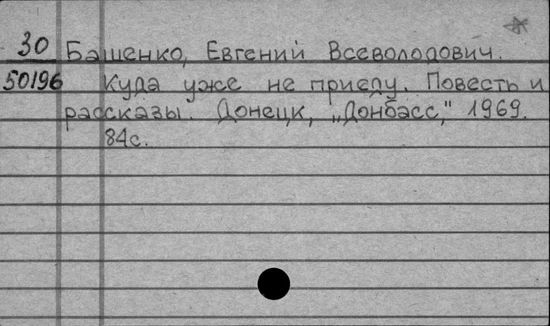 30 Башенко, Евгений Всеволодович.
50196 Куда уже не приеду. Повесть и
рассказы. Донецк, „Донбасс," 1969.
84с.